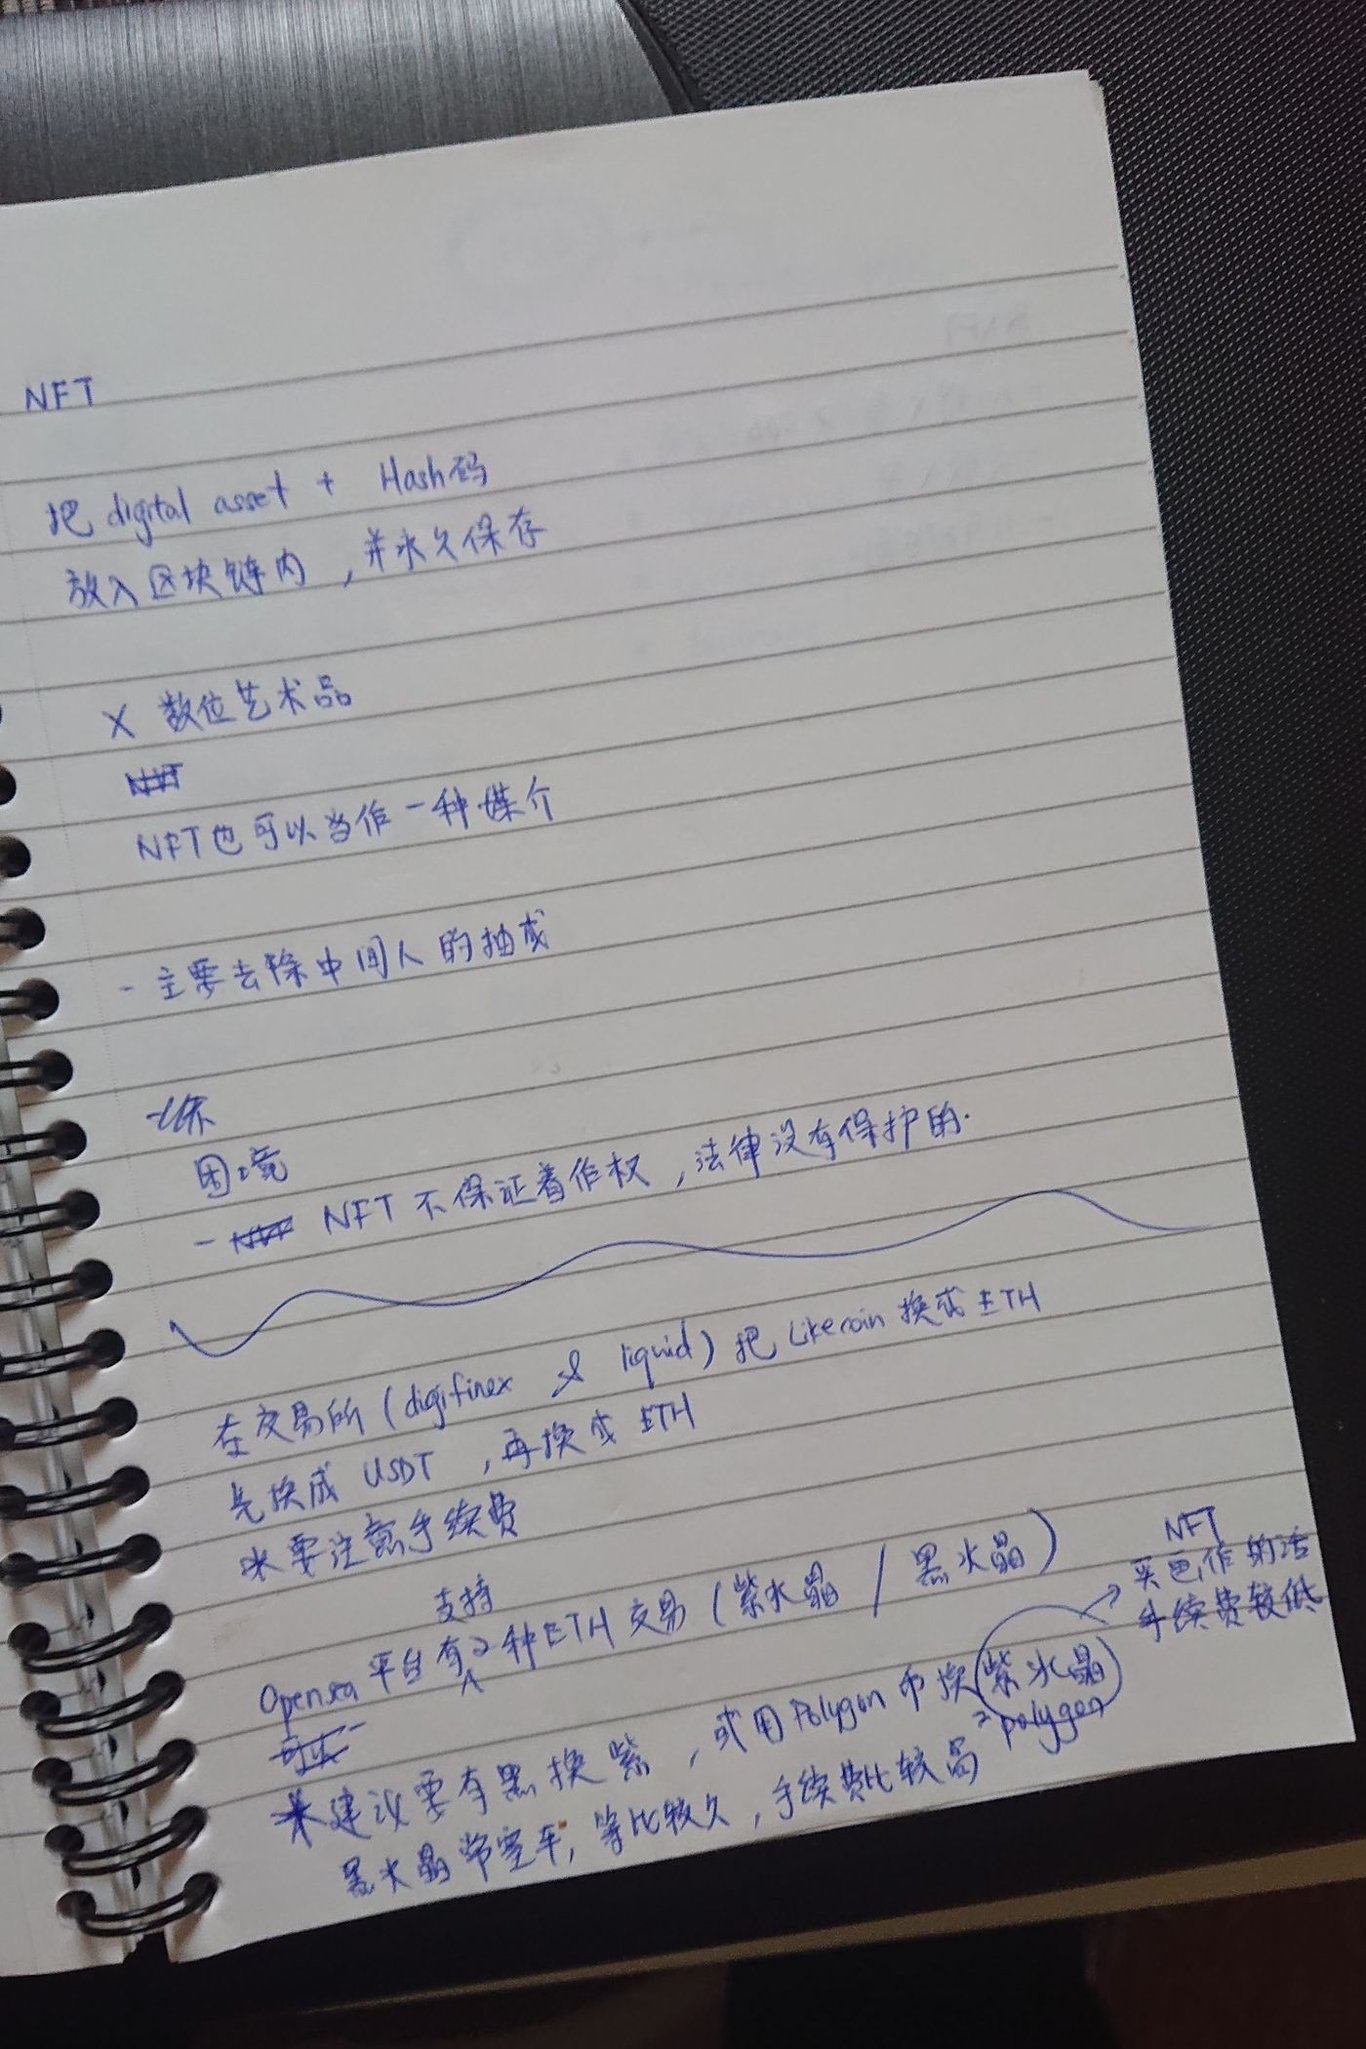 NFT
把 digital asset + Hash码
放入区块链内，并永久保存
X 数位艺术品
NFT也可以当作一种媒介
- 主要去除中间人的抽成
困境
- NFT 不保证着作权，法律没有保护的.
在交易所 (digifinex & liquid) 把 Likecoin 换成 ETH
先换成 USDT，再换成 ETH
* 要注意手续费
支持
Opensea 平台有2种ETH交易 (紫水晶 / 黑水晶)
NFT
买 的话
手续费较低
* 建议要有黑换紫，或用 Polygon 币换紫水晶
polygon
黑水晶常塞车，等比较久，手续费比较高